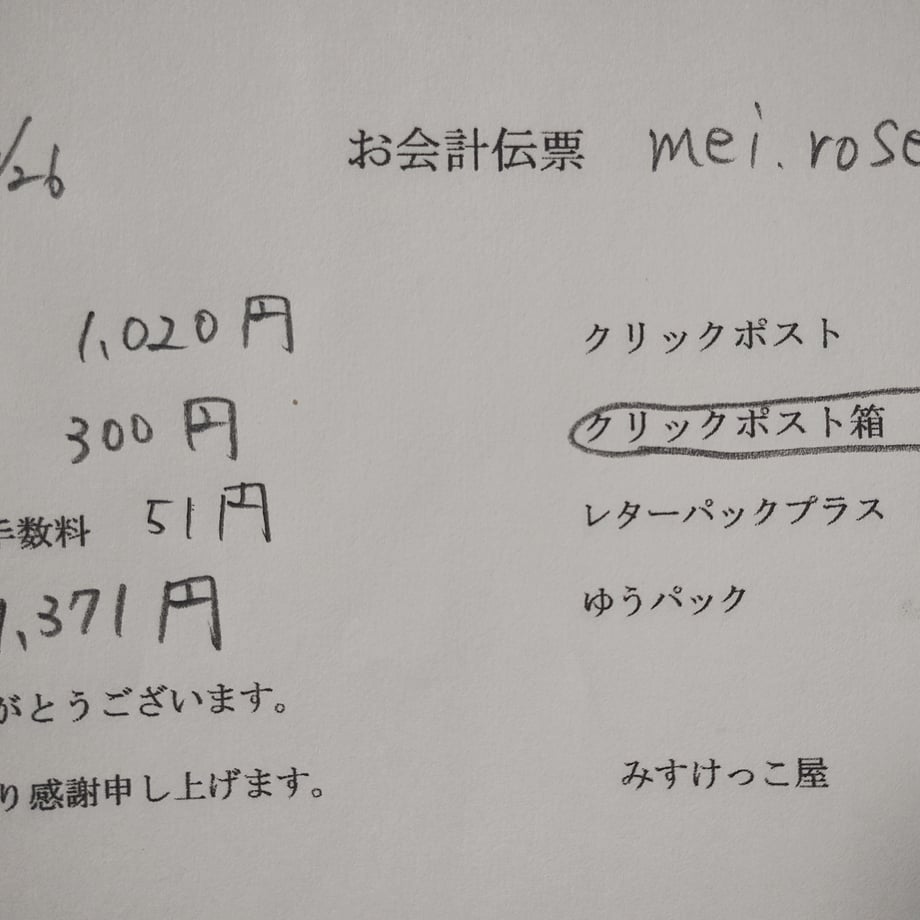 /26 お会計伝票 mei.rose
1,020円 クリックポスト
300円 クリックポスト箱
手数料 51円 レターパックプラス
1,371円 ゆうパック
がとうございます。
り感謝申し上げます。 みすけっこ屋